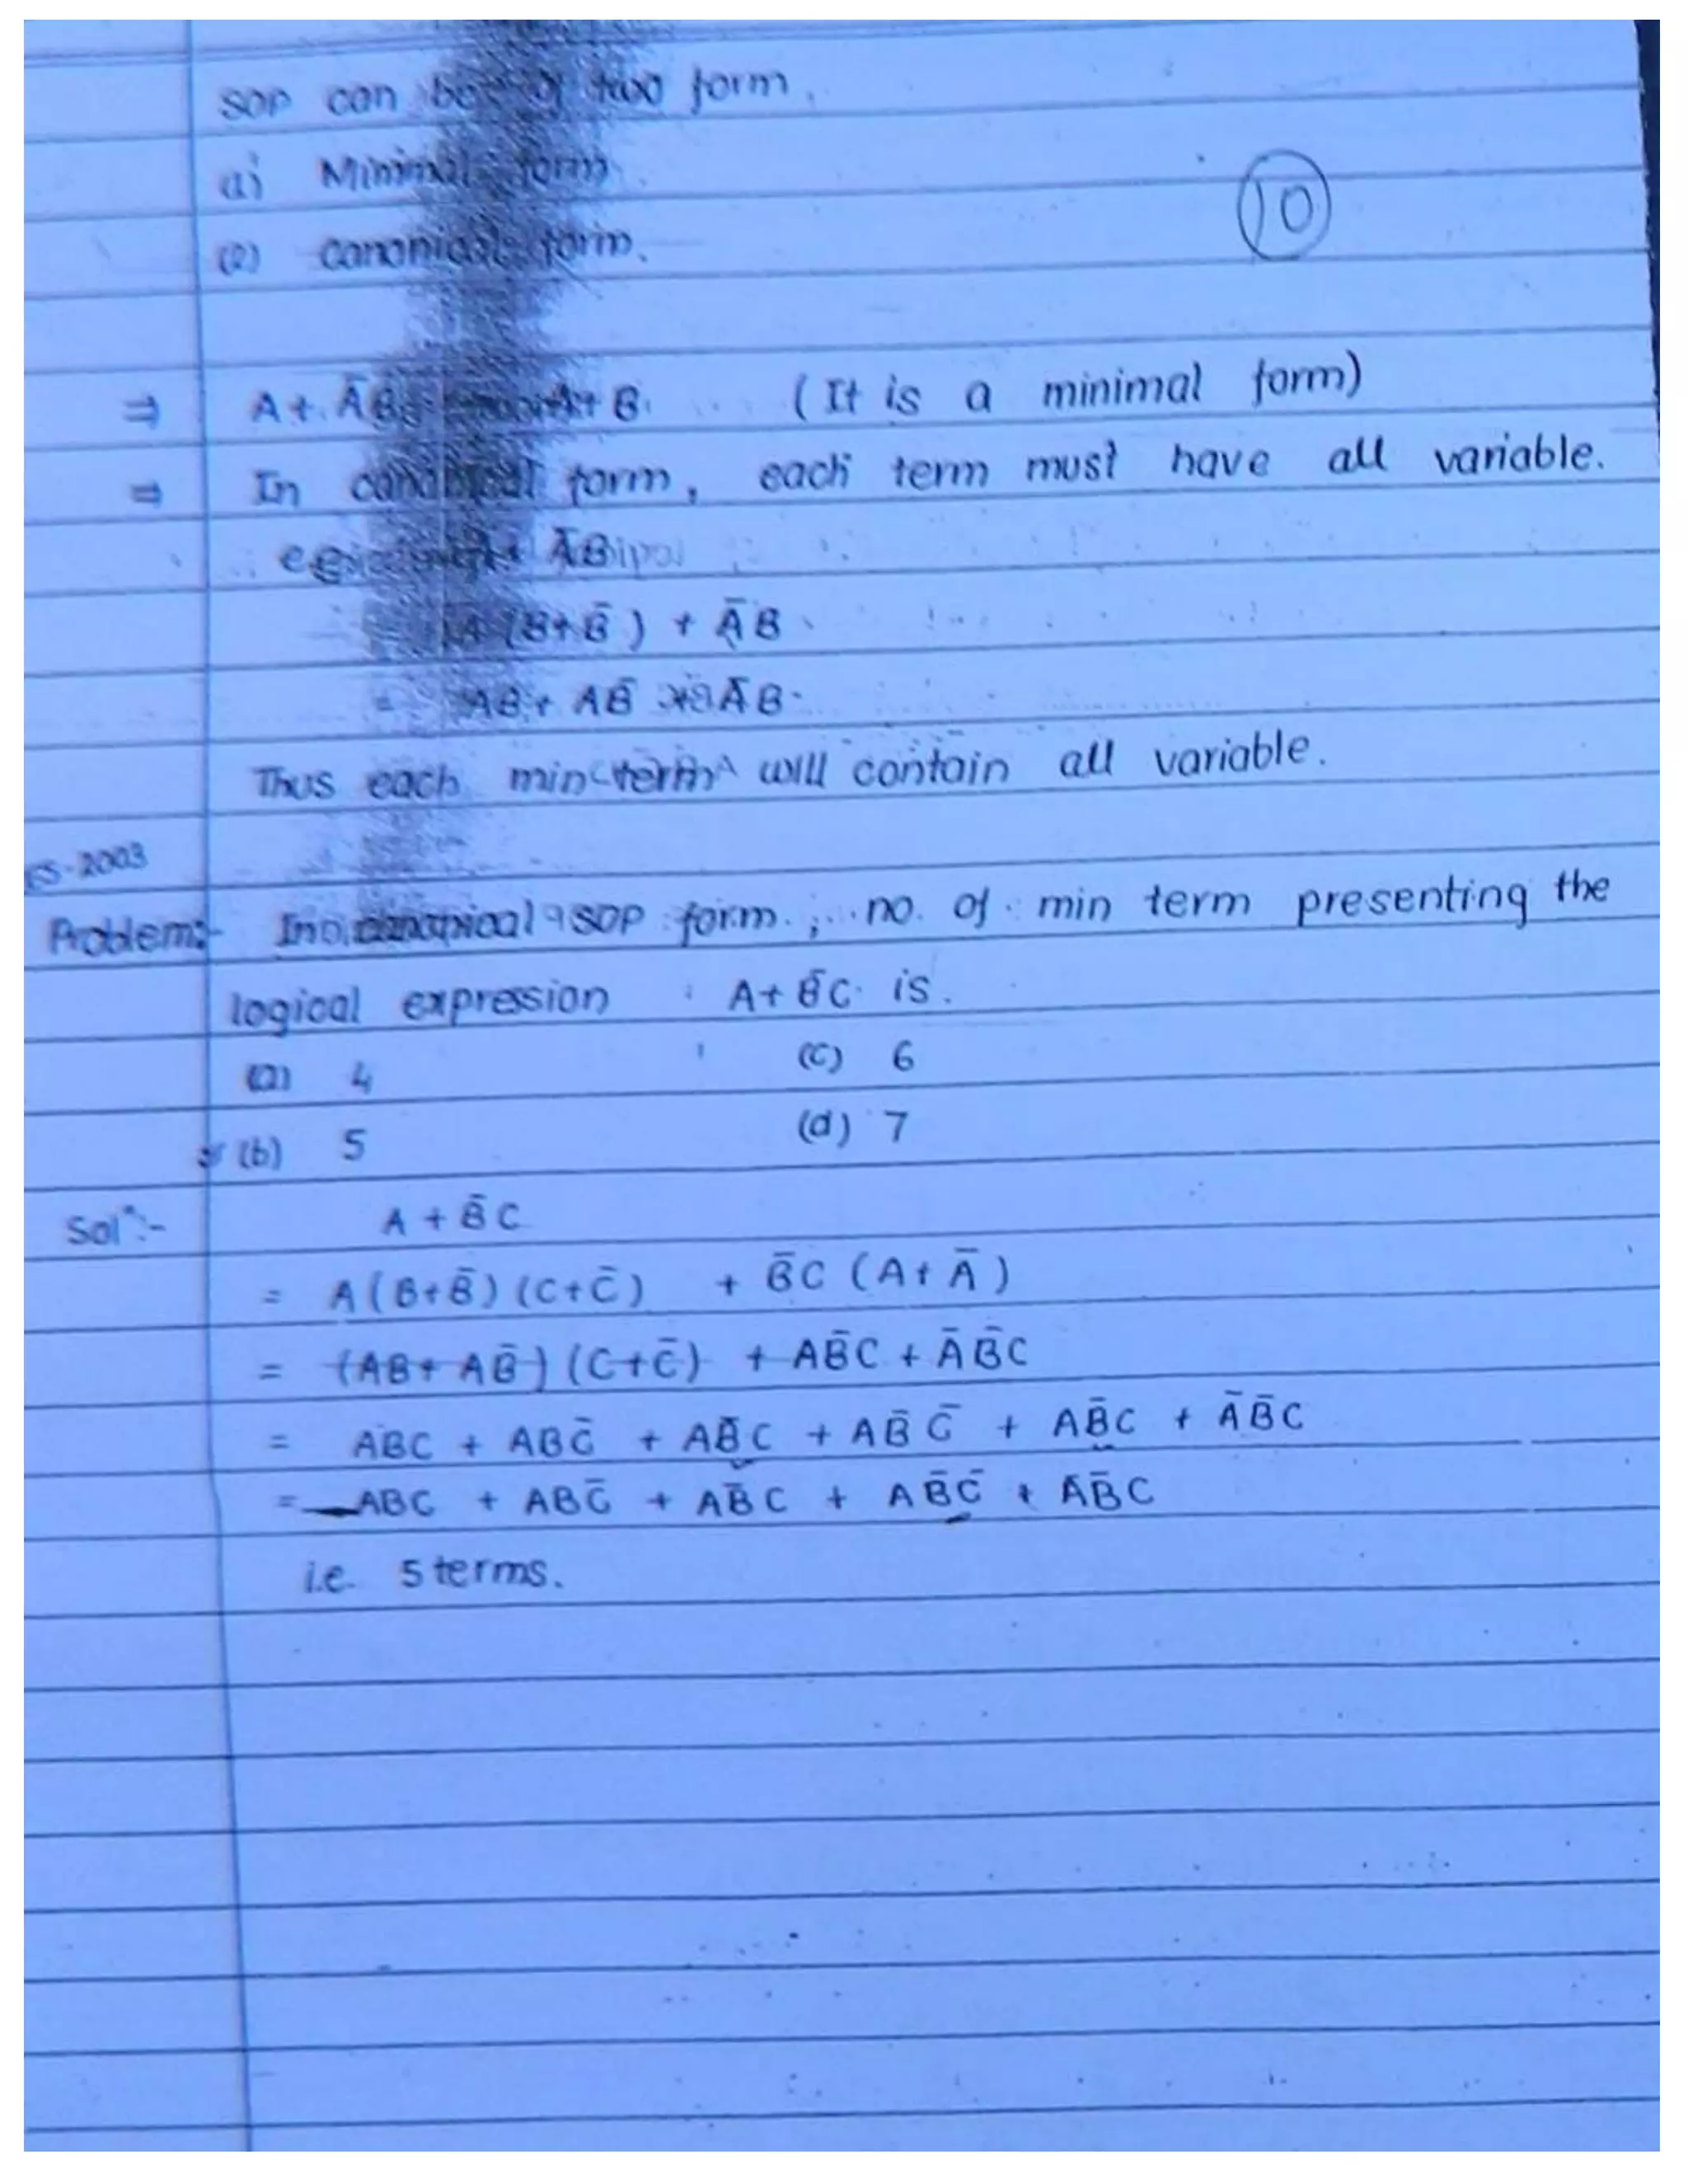 SOP can be of two form.
(1) Minimal form.
(2) canonical form.
10
⇒ A + ĀB = A + B. (It is a minimal form)
⇒ In canonical form, each term must have all variable.
eg ĀB
A (B+B̄) + ĀB
= AB + AB̄ + ĀB.
Thus each min term will contain all variable.
ES-2003
Problem:- In canonical SOP form, no. of min term presenting the
logical expression A+B̄C is.
(a) 4 (c) 6
(b) 5 (d) 7
Solⁿ:- A + B̄C
= A(B+B̄)(C+C̄) + B̄C (A+Ā)
= (AB+AB̄)(C+C̄) + AB̄C + ĀB̄C
= ABC + ABC̄ + AB̄C + AB̄C̄ + AB̄C + ĀB̄C
= ABC + ABC̄ + AB̄C + AB̄C̄ + ĀB̄C
i.e. 5 terms.